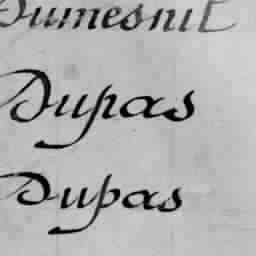 Dumesnil
Dupas
Dupas